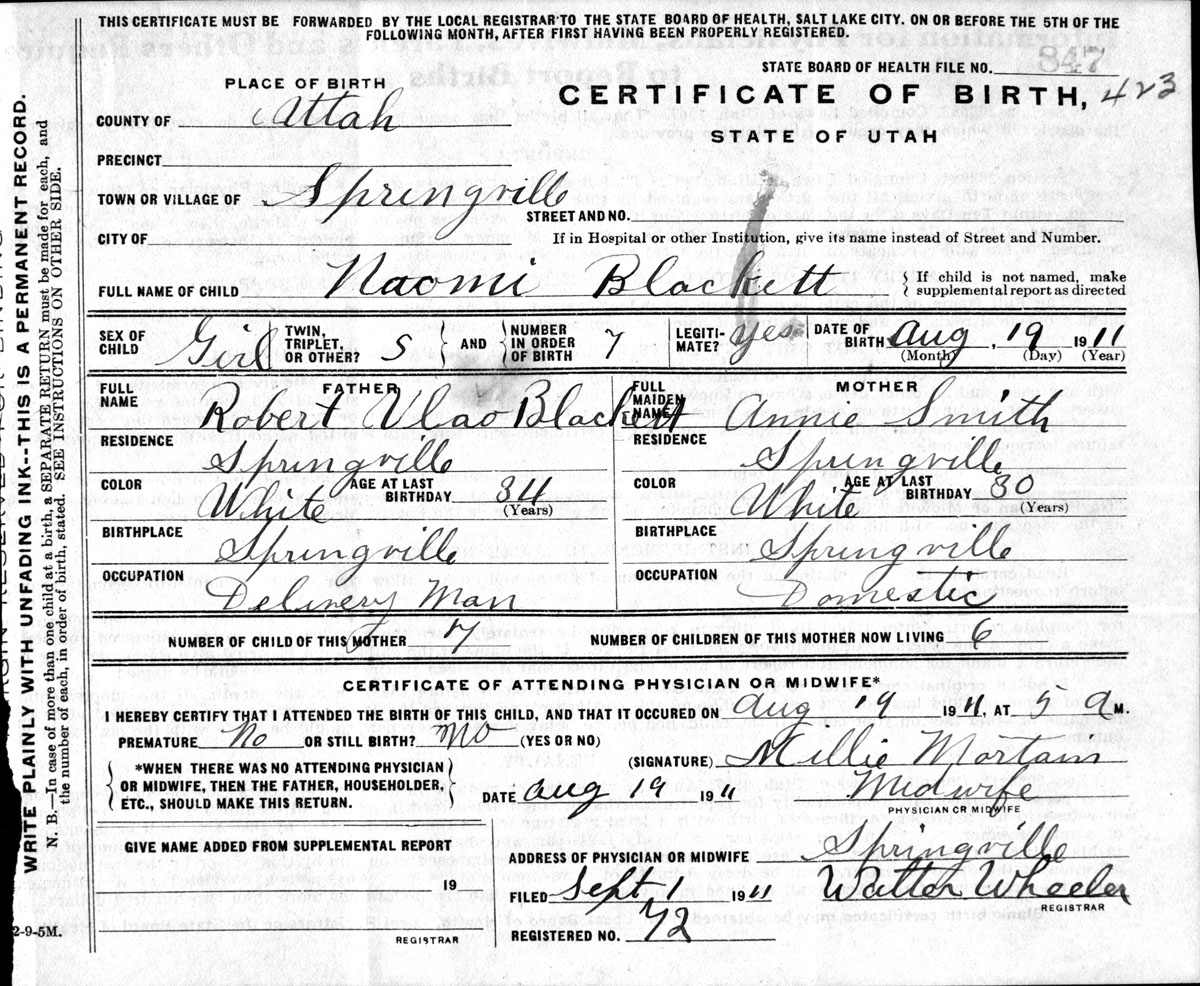 THIS CERTIFICATE MUST BE FORWARDED BY THE LOCAL REGISTRAR TO THE STATE BOARD OF HEALTH, SALT LAKE CITY. ON OR BEFORE THE 5TH OF THE
FOLLOWING MONTH, AFTER FIRST HAVING BEEN PROPERLY REGISTERED.
STATE BOARD OF HEALTH FILE NO. 847
PLACE OF BIRTH
CERTIFICATE OF BIRTH, 423
COUNTY OF Uttah
STATE OF UTAH
PRECINCT
TOWN OR VILLAGE OF Springville
STREET AND NO.
CITY OF If in Hospital or other Institution, give its name instead of Street and Number.
FULL NAME OF CHILD Naomi Blackett { If child is not named, make
supplemental report as directed
SEX OF CHILD Girl TWIN, TRIPLET, OR OTHER? S } AND { NUMBER IN ORDER OF BIRTH 7 LEGITI-MATE? yes DATE OF BIRTH Aug, 19 1911
(Month) (Day) (Year)
FATHER
FULL NAME Robert Blackett
RESIDENCE Springville
COLOR White AGE AT LAST BIRTHDAY 34 (Years)
BIRTHPLACE Springville
OCCUPATION Delivery Man
MOTHER
FULL MAIDEN NAME Annie Smith
RESIDENCE Springville
COLOR White AGE AT LAST BIRTHDAY 30 (Years)
BIRTHPLACE Springville
OCCUPATION Domestic
NUMBER OF CHILD OF THIS MOTHER 7 NUMBER OF CHILDREN OF THIS MOTHER NOW LIVING 6
CERTIFICATE OF ATTENDING PHYSICIAN OR MIDWIFE*
I HEREBY CERTIFY THAT I ATTENDED THE BIRTH OF THIS CHILD, AND THAT IT OCCUPED ON Aug 19 1911, AT 5 a M.
PREMATURE No OR STILL BIRTH? No (YES OR NO)
(SIGNATURE) Millie
{ *WHEN THERE WAS NO ATTENDING PHYSICIAN
OR MIDWIFE, THEN THE FATHER, HOUSEHOLDER,
ETC., SHOULD MAKE THIS RETURN. }
DATE Aug 19 1911 Midwife
PHYSICIAN OR MIDWIFE
GIVE NAME ADDED FROM SUPPLEMENTAL REPORT
19
REGISTRAR
ADDRESS OF PHYSICIAN OR MIDWIFE Springville
FILED Sept 1 1911 Walter Wheeler
REGISTRAR
REGISTERED NO. 72
WRITE PLAINLY WITH UNFADING INK--THIS IS A PERMANENT RECORD.
N. B.—In case of more than one child at a birth, a SEPARATE RETURN must be made for each, and
the number of each, in order of birth, stated. SEE INSTRUCTIONS ON OTHER SIDE.
2-9-5M.